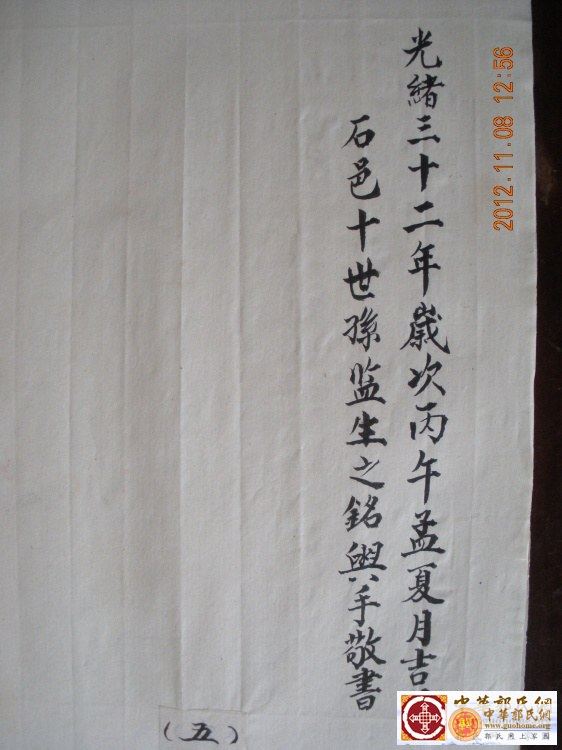 光緒三十二年歲次丙午孟夏月吉
石邑十世孫监生之銘輿手敬書
（五）
2012.11.08 12:56
中華郭氏網
www.guohome.org
郭氏網上家園